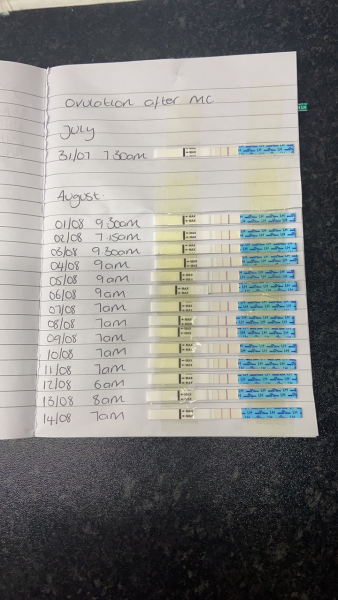 Ovulation after MC
July
31/07 7.30am
August.
01/08 9.30am
02/08 7.15am
03/08 9.30am
04/08 9am
05/08 9am
06/08 9am
07/08 7am
08/08 7am
09/08 7am
10/08 7am
11/08 7am
12/08 6am
13/08 8am
14/08 7am